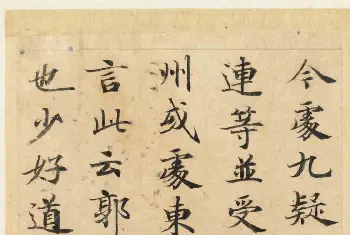 今處九疑
連等並受
州或處東
言此云郭
也少好道